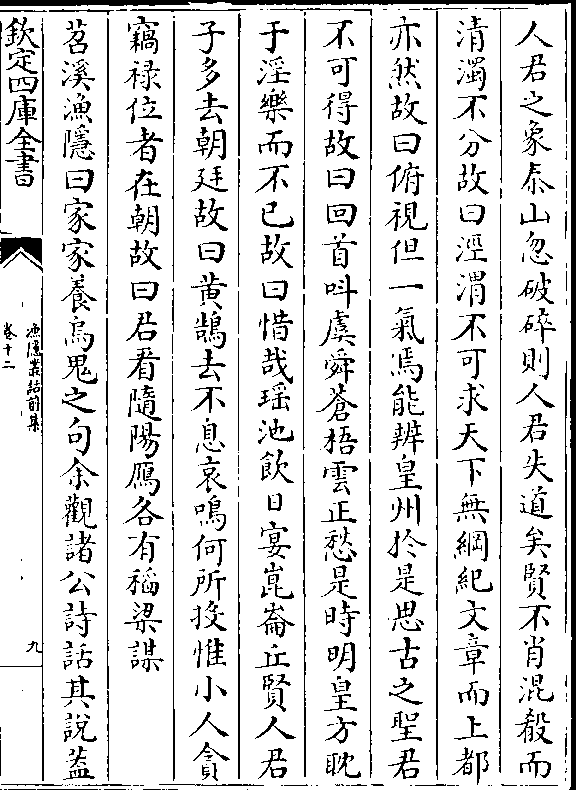 人君之象泰山忽破碎則人君失道矣賢不肖混殽而
清濁不分故曰涇渭不可求天下無綱紀文章而上都
亦然故曰俯視但一氣焉能辨皇州於是思古之聖君
不可得故曰回首叫虞舜蒼梧雲正愁是時明皇方耽
于淫樂而不已故曰惜哉瑶池飲日宴崑崙丘賢人君
子多去朝廷故曰黃鵠去不息哀鳴何所投惟小人貪
竊禄位者在朝故曰君看隨陽鴈各有稻粱謀
苕溪漁隱曰家家養烏鬼之句余觀諸公詩話其說蓋
欽定四庫全書
漁隱叢話前集
卷十二
九